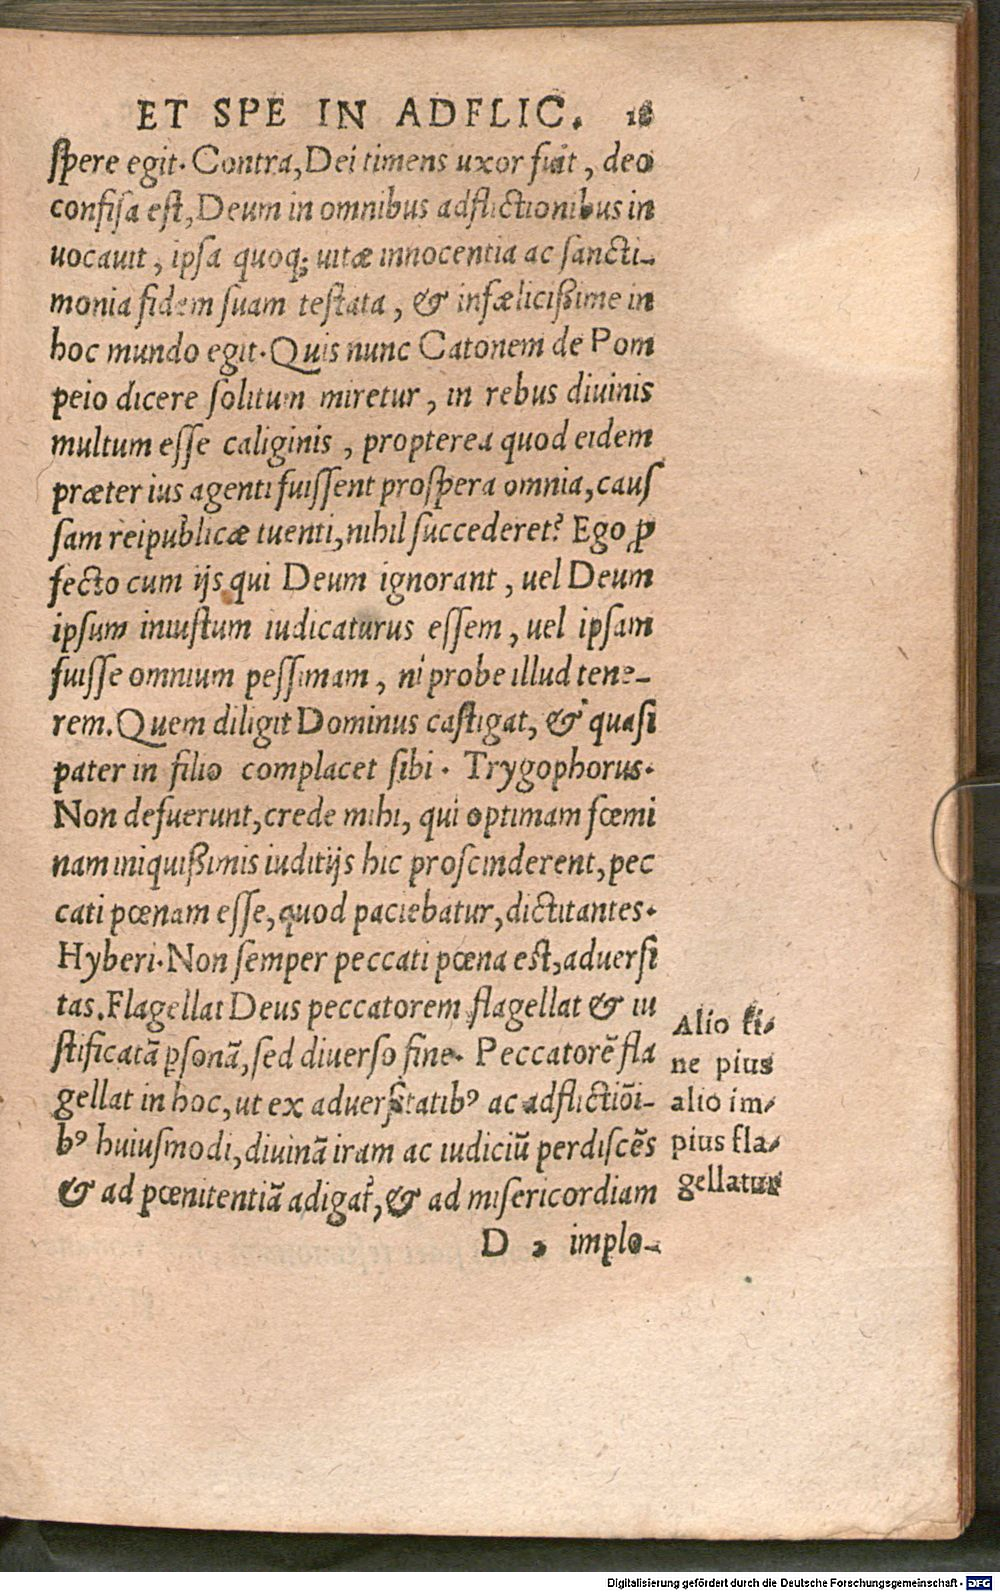 ET SPE IN ADFLIC. 18
ſpere egit. Contra, Dei timens uxor fuit, deo
confiſa eſt, Deum in omnibus adflictionibus in
uocauit, ipſa quoq; uitæ innocentia ac ſancti-
monia fidem ſuam teſtata, & infœlicißime in
hoc mundo egit. Quis nunc Catonem de Pom
peio dicere ſolitum miretur, in rebus diuinis
multum eſſe caliginis, propterea quod eidem
præter ius agenti fuiſſent proſpera omnia, cauſ
ſam reipublicæ tuenti, nihil ſuccederet? Ego ꝓ
fecto cum ijs qui Deum ignorant, uel Deum
ipſum iniuſtum iudicaturus eſſem, uel ipſam
fuiſſe omnium peſſimam, ni probe illud tene-
rem. Quem diligit Dominus caſtigat, & quaſi
pater in filio complacet ſibi. Trygophorus.
Non defuerunt, crede mihi, qui optimam fœmi
nam iniquißimis iuditijs hic proſcinderent, pec
cati pœnam eſſe, quod paciebatur, dictitantes.
Hyberi. Non ſemper peccati pœna eſt, aduerſi
tas. Flagellat Deus peccatorem flagellat & iu
ſtificatã ꝑſonã, ſed diuerſo fine. Peccatorẽ fla
gellat in hoc, ut ex aduerſitatibꝰ ac adflictiõi-
bꝰ huiuſmodi, diuinã iram ac iudiciũ perdiſcẽs
& ad pœnitentiã adigat̃, & ad miſericordiam
D 2 implo-
Alio fi-
ne pius
alio im-
pius fla-
gellatur
Digitalisierung gefördert durch die Deutsche Forschungsgemeinschaft - DFG